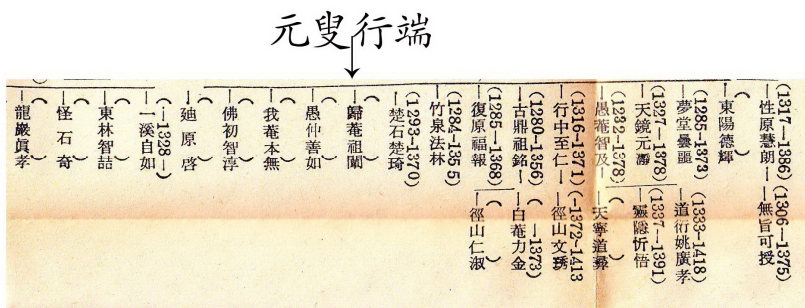 元叟行端
(1317—1386) (1306—1375)
性原慧朗—無旨可授
( )
東陽德輝
(1285—1373) (1333—1418)
夢堂曇噩 道衍姚廣孝
(1327—1378) (1337—1391)
天鏡元瀞 靈隱忻悟
(1232—1378) ( )
愚菴智及—天寧道彝
(1316—1371) (—1372—1413
行中至仁—徑山文琇
(1280—1356) ( —1373)
古鼎祖銘—白菴力金
(1285—1368) ( )
復原福報 徑山仁淑
(1284—1355)
竹泉法林
(1293—1370)
楚石梵琦
( )
歸菴祖闡
( )
愚仲善如
( )
我菴本無
( )
佛初智淳
( )
廸原啓
(—1328—)
一溪自如
( )
東林智喆
( )
怪石奇
( )
龍巖眞孝